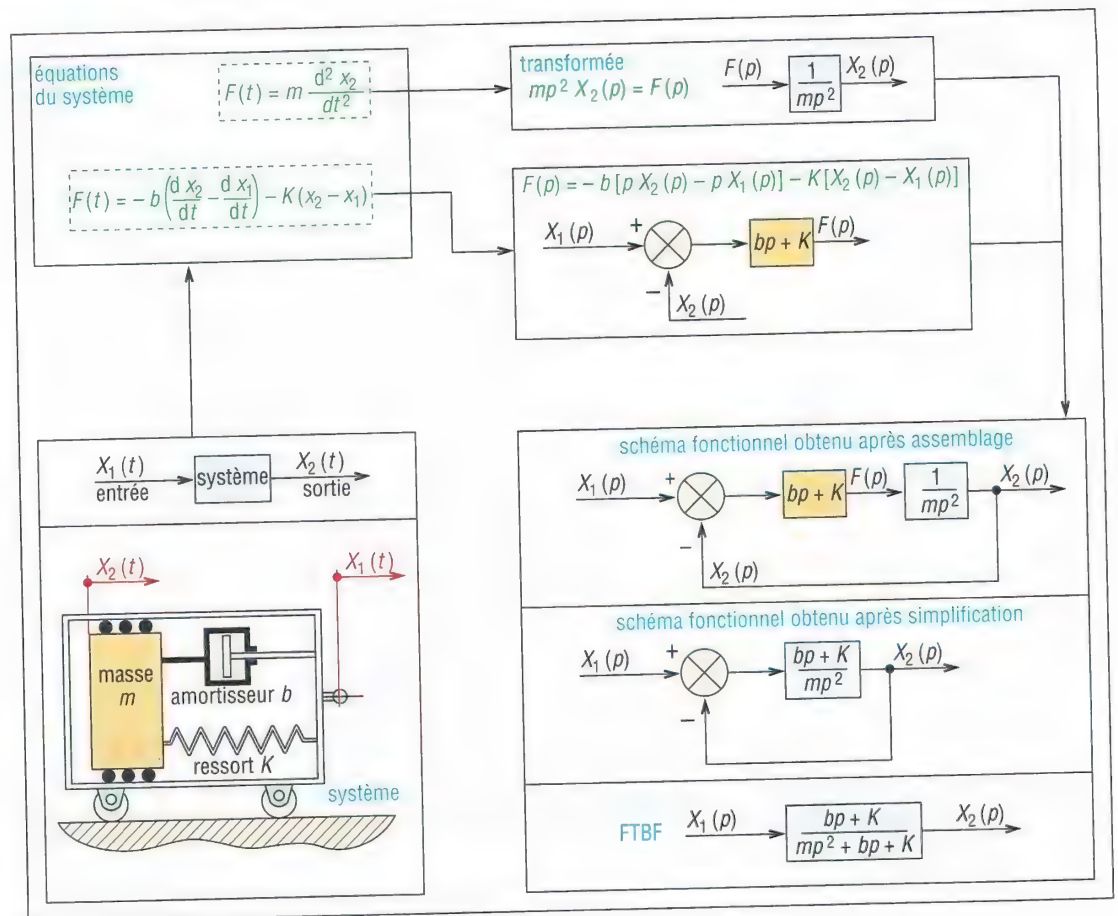 équations
du système
F(t) = m d² x₂ / dt²
F(t) = – b (d x₂/dt – d x₁/dt) – K (x₂ – x₁)
transformée
mp² X₂(p) = F(p)
F(p) 1/mp² X₂(p)
F(p) = – b [p X₂(p) – p X₁(p)] – K [X₂(p) – X₁(p)]
X₁(p) + bp + K F(p)
– X₂(p)
X₁(t) entrée système X₂(t) sortie
X₂(t) X₁(t)
masse
m
amortisseur b
ressort K
système
schéma fonctionnel obtenu après assemblage
X₁(p) + bp + K F(p) 1/mp² X₂(p)
– X₂(p)
schéma fonctionnel obtenu après simplification
X₁(p) + bp + K / mp² X₂(p)
–
FTBF X₁(p) bp + K / mp² + bp + K X₂(p)